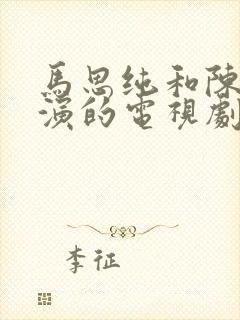 馬思纯和陳
演的電視劇
李征